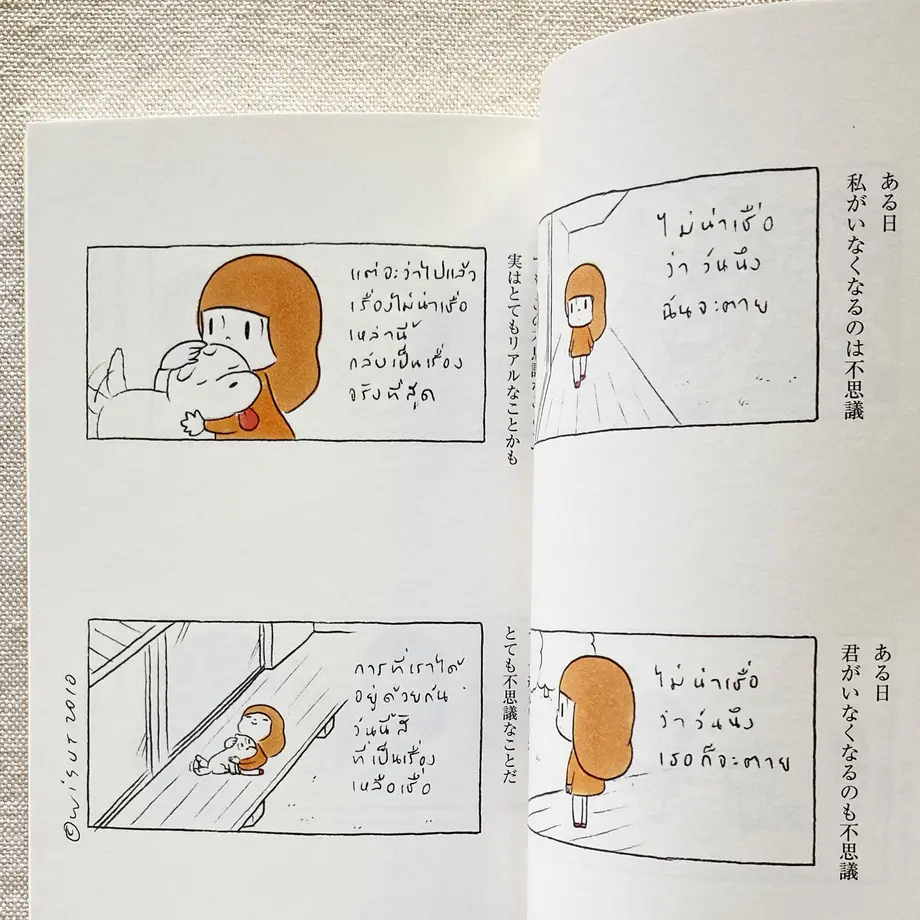 ある日
私がいなくなるのは不思議
ไม่น่าเชื่อ
ว่า วันนึง
ฉันจะตาย
ある日
君がいなくなるのも不思議
ไม่น่าเชื่อ
ว่า วันนึง
เธอก็จะตาย
実はとてもリアルなことかも
แต่จะว่าไปแล้ว
เรื่องไม่น่าเชื่อ
เหล่านี้
กลับเป็นเรื่อง
จริงที่สุด
とても不思議なことだ
การที่เราได้
อยู่ด้วยกัน
วันนี้สิ
ที่เป็นเรื่อง
เหลือเชื่อ
©WISUT 2010